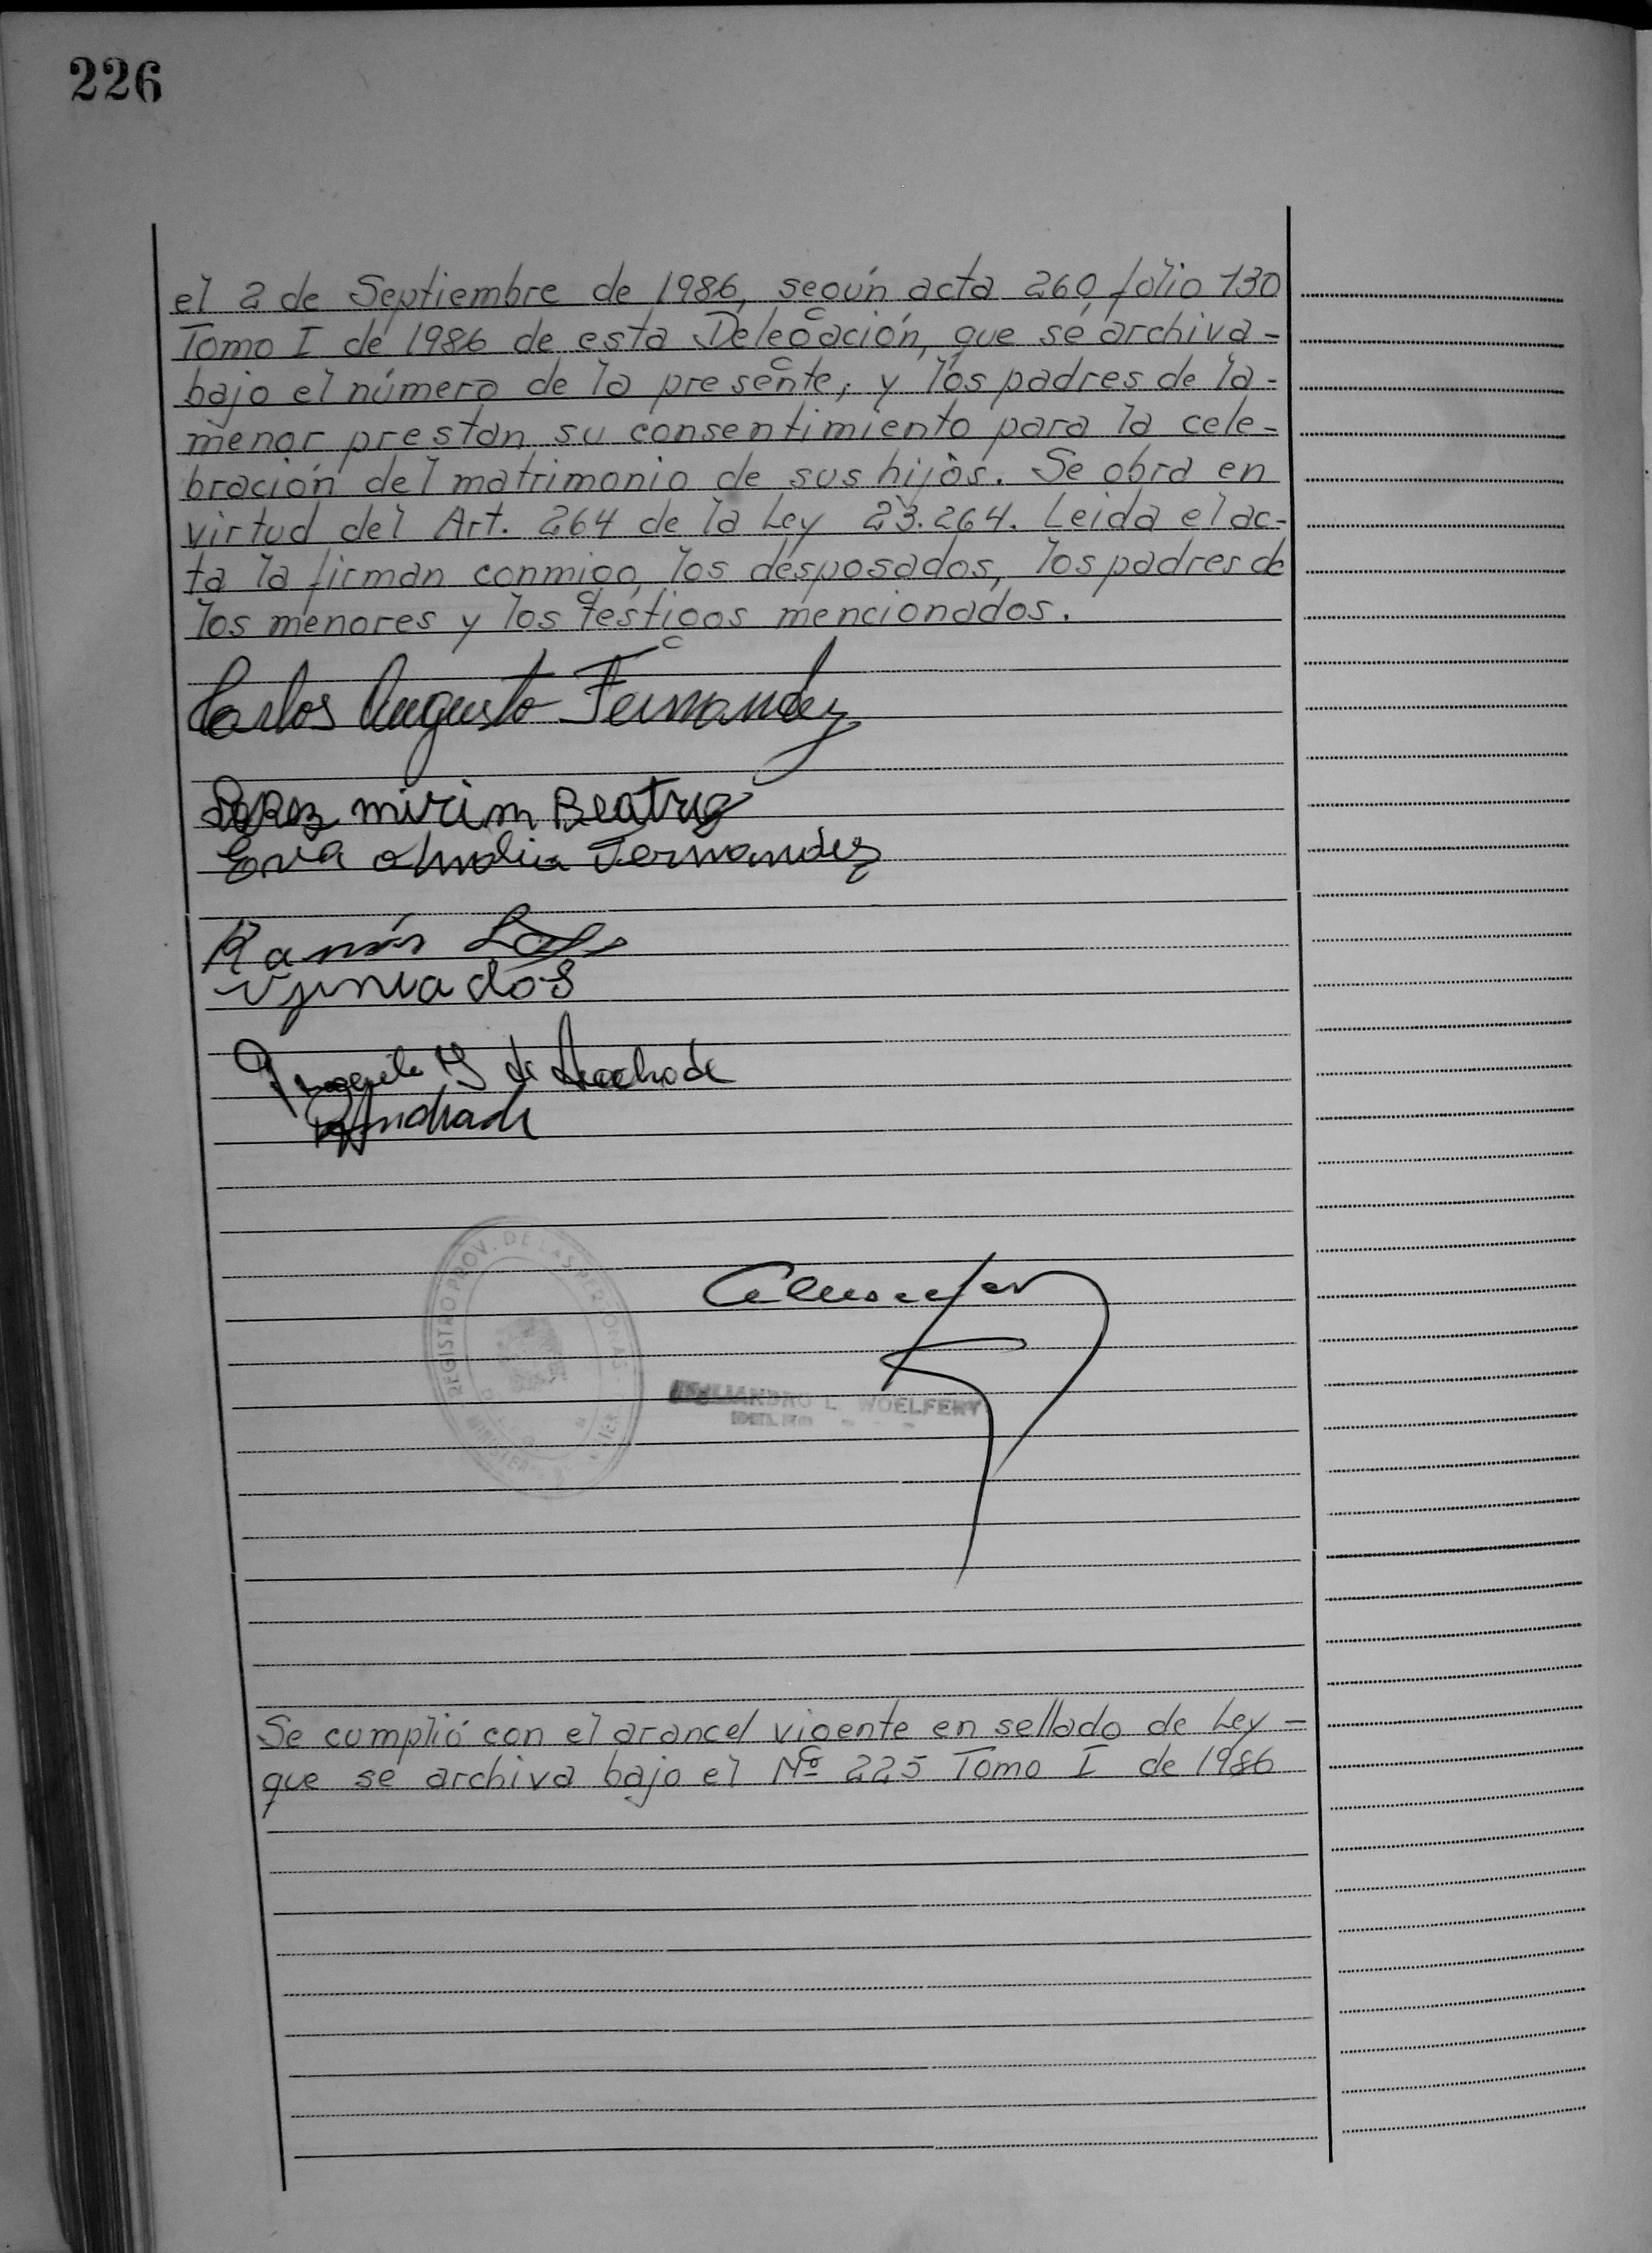 226
el 2 de Septiembre de 1986, según acta 260, folio 130
Tomo I de 1986 de esta Delegación, que se archiva -
bajo el número de la presente; y los padres de la -
menor prestan su consentimiento para la cele-
bración del matrimonio de sus hijos. Se obra en
virtud del Art. 264 de la Ley 23.264. Leida el ac-
ta la firman conmigo, los desposados, los padres de
los menores y los testigos mencionados.
Carlos Augusto Fernandez
mirim Beatriz
Eva Fernandez
Ramón
de Andrade
Andrade
REGISTRO PROV. DE LAS PERSONAS
L. WOELFERT
Se cumplió con el arancel vigente en sellado de Ley -
que se archiva bajo el Nº 225 Tomo I de 1986